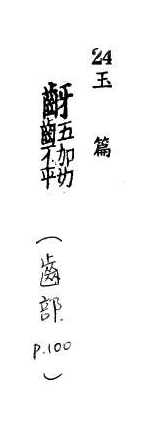 24 玉篇
齖 五加切 齒不平
（齒部 P.100）